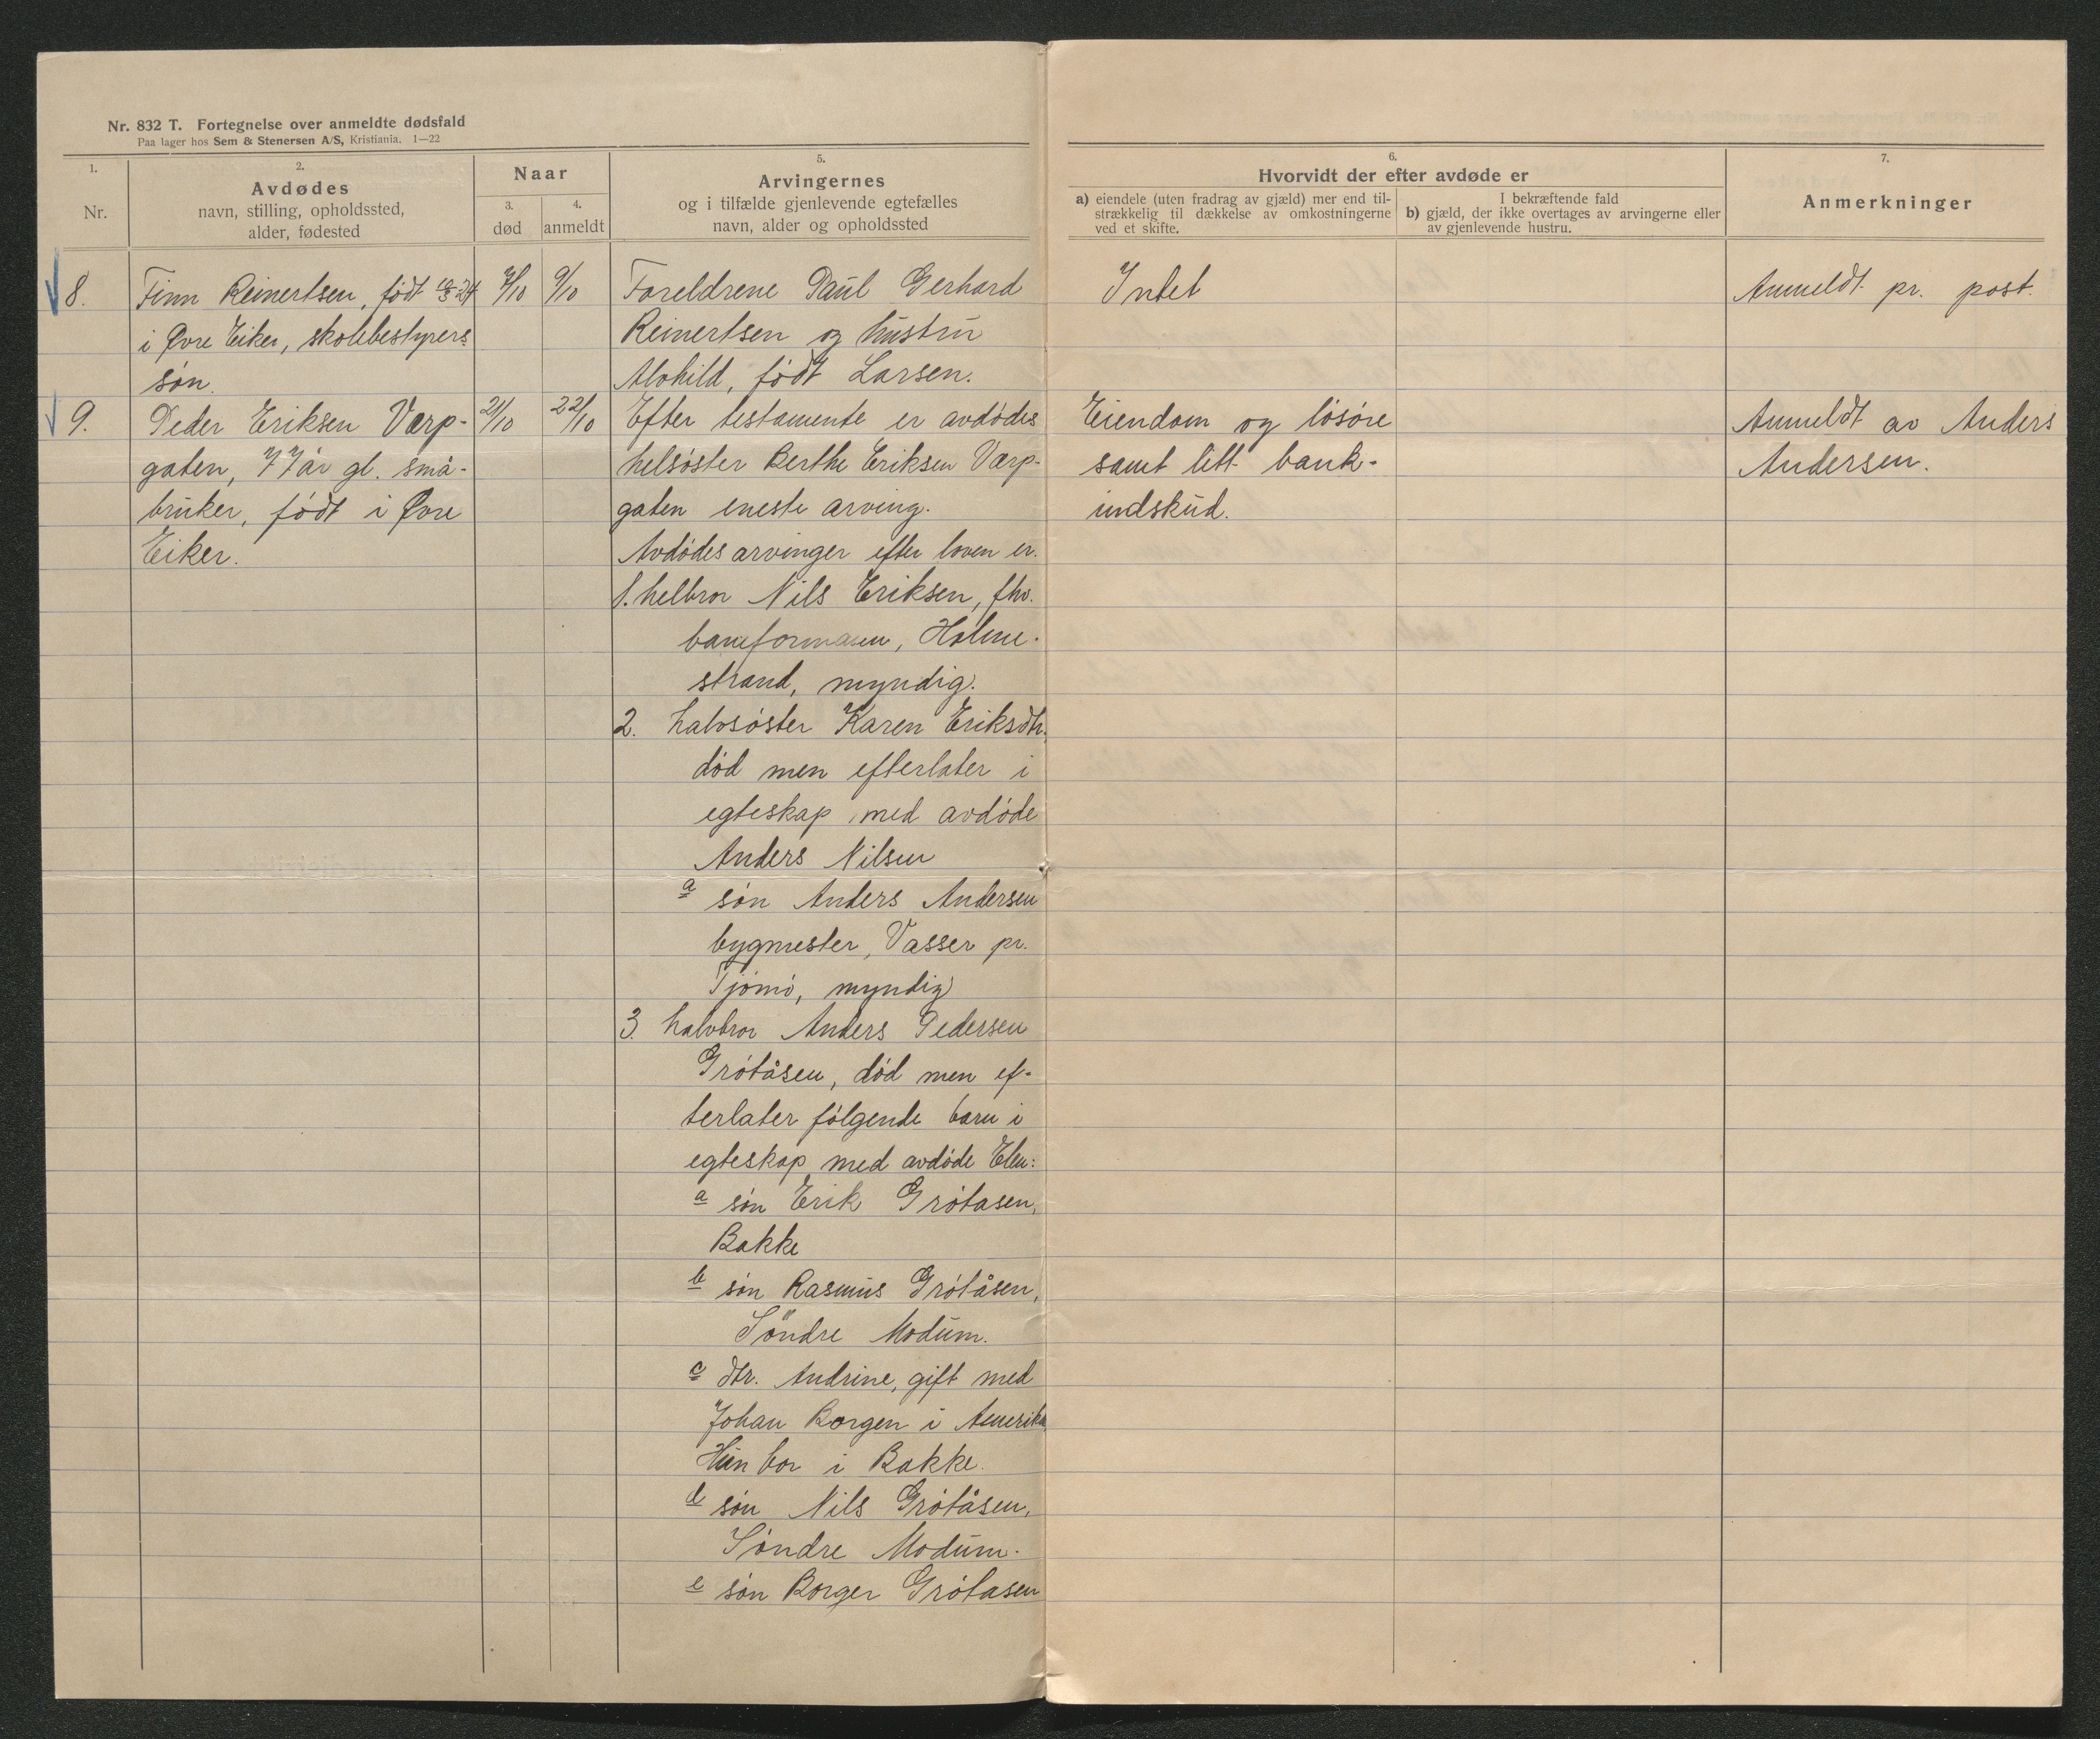 Nr. 832 T. Fortegnelse over anmeldte dødsfald
Paa lager hos Sem & Stenersen A/S, Kristiania. 1—22
1.
Nr.
2.
Avdødes
navn, stilling, opholdssted,
alder, fødested
Naar
3.
død
4.
anmeldt
5.
Arvingernes
og i tilfælde gjenlevende egtefælles
navn, alder og opholdssted
6.
Hvorvidt der efter avdøde er
a) eiendele (uten fradrag av gjæld) mer end til-
strækkelig til dækkelse av omkostningerne
ved et skifte.
I bekræftende fald
b) gjæld, der ikke overtages av arvingerne eller
av gjenlevende hustru.
7.
Anmerkninger
8.
Finn Reinertsen, født 24
i Øvre Eiker, skolebestyrers
søn.
7/10
9/10
Foreldrene Paul Gerhard
Reinertsen og hustru
Alvhild, født Larsen.
Intet
Anmeldt pr. post.
9.
Peder Eriksen Varp-
gaten, 77 år gl. små-
bruker, født i Øvre
Eiker.
21/10
22/10
Efter testamente er avdødes
helsøster Berthe Eriksen Varp-
gaten eneste arving.
Avdødes arvinger efter loven er.
1. helbror Nils Eriksen, fhv.
baneformann, Holme-
strand, myndig.
2. halvsøster Karen Eriksdtr.
død men efterlater i
egteskap med avdøde
Anders Nilsen
a søn Anders Andersen
bygmester, Vasser pr.
Tjømø, myndig
3. halvbror Anders Pedersen
Grøtåsen, død men ef-
terlater følgende barn i
egteskap med avdøde Elen:
a søn Erik Grøtasen,
Bakke
b søn Rasmus Grøtåsen,
Søndre Modum.
c dtr. Andrine, gift med
Johan Borgen i Amerika
Hun bor i Bakke.
d søn Nils Grøtåsen,
Søndre Modum.
e søn Borger Grøtasen
Eiendom og løsøre
samt litt bank-
indskud.
Anmeldt av Anders
Andersen.